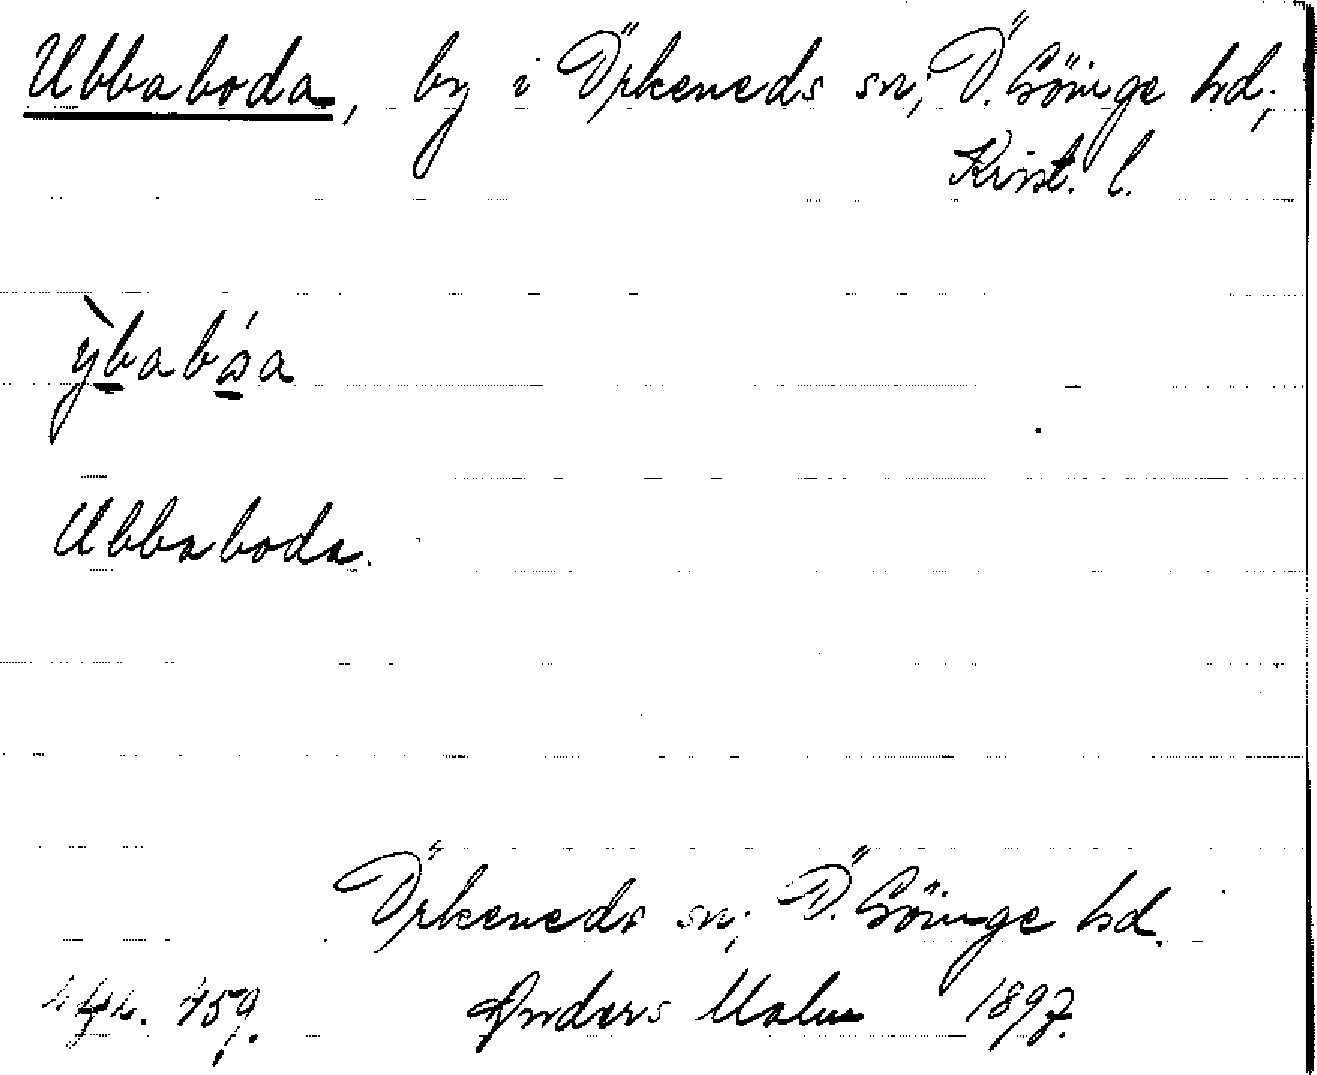 Ubbaboda, by i Örkeneds sn, Ö. Göinge hd,
Krist. l.
Ubbaboda.
Örkeneds sn, Ö. Göinge hd.
459. Anders Malm 1897.